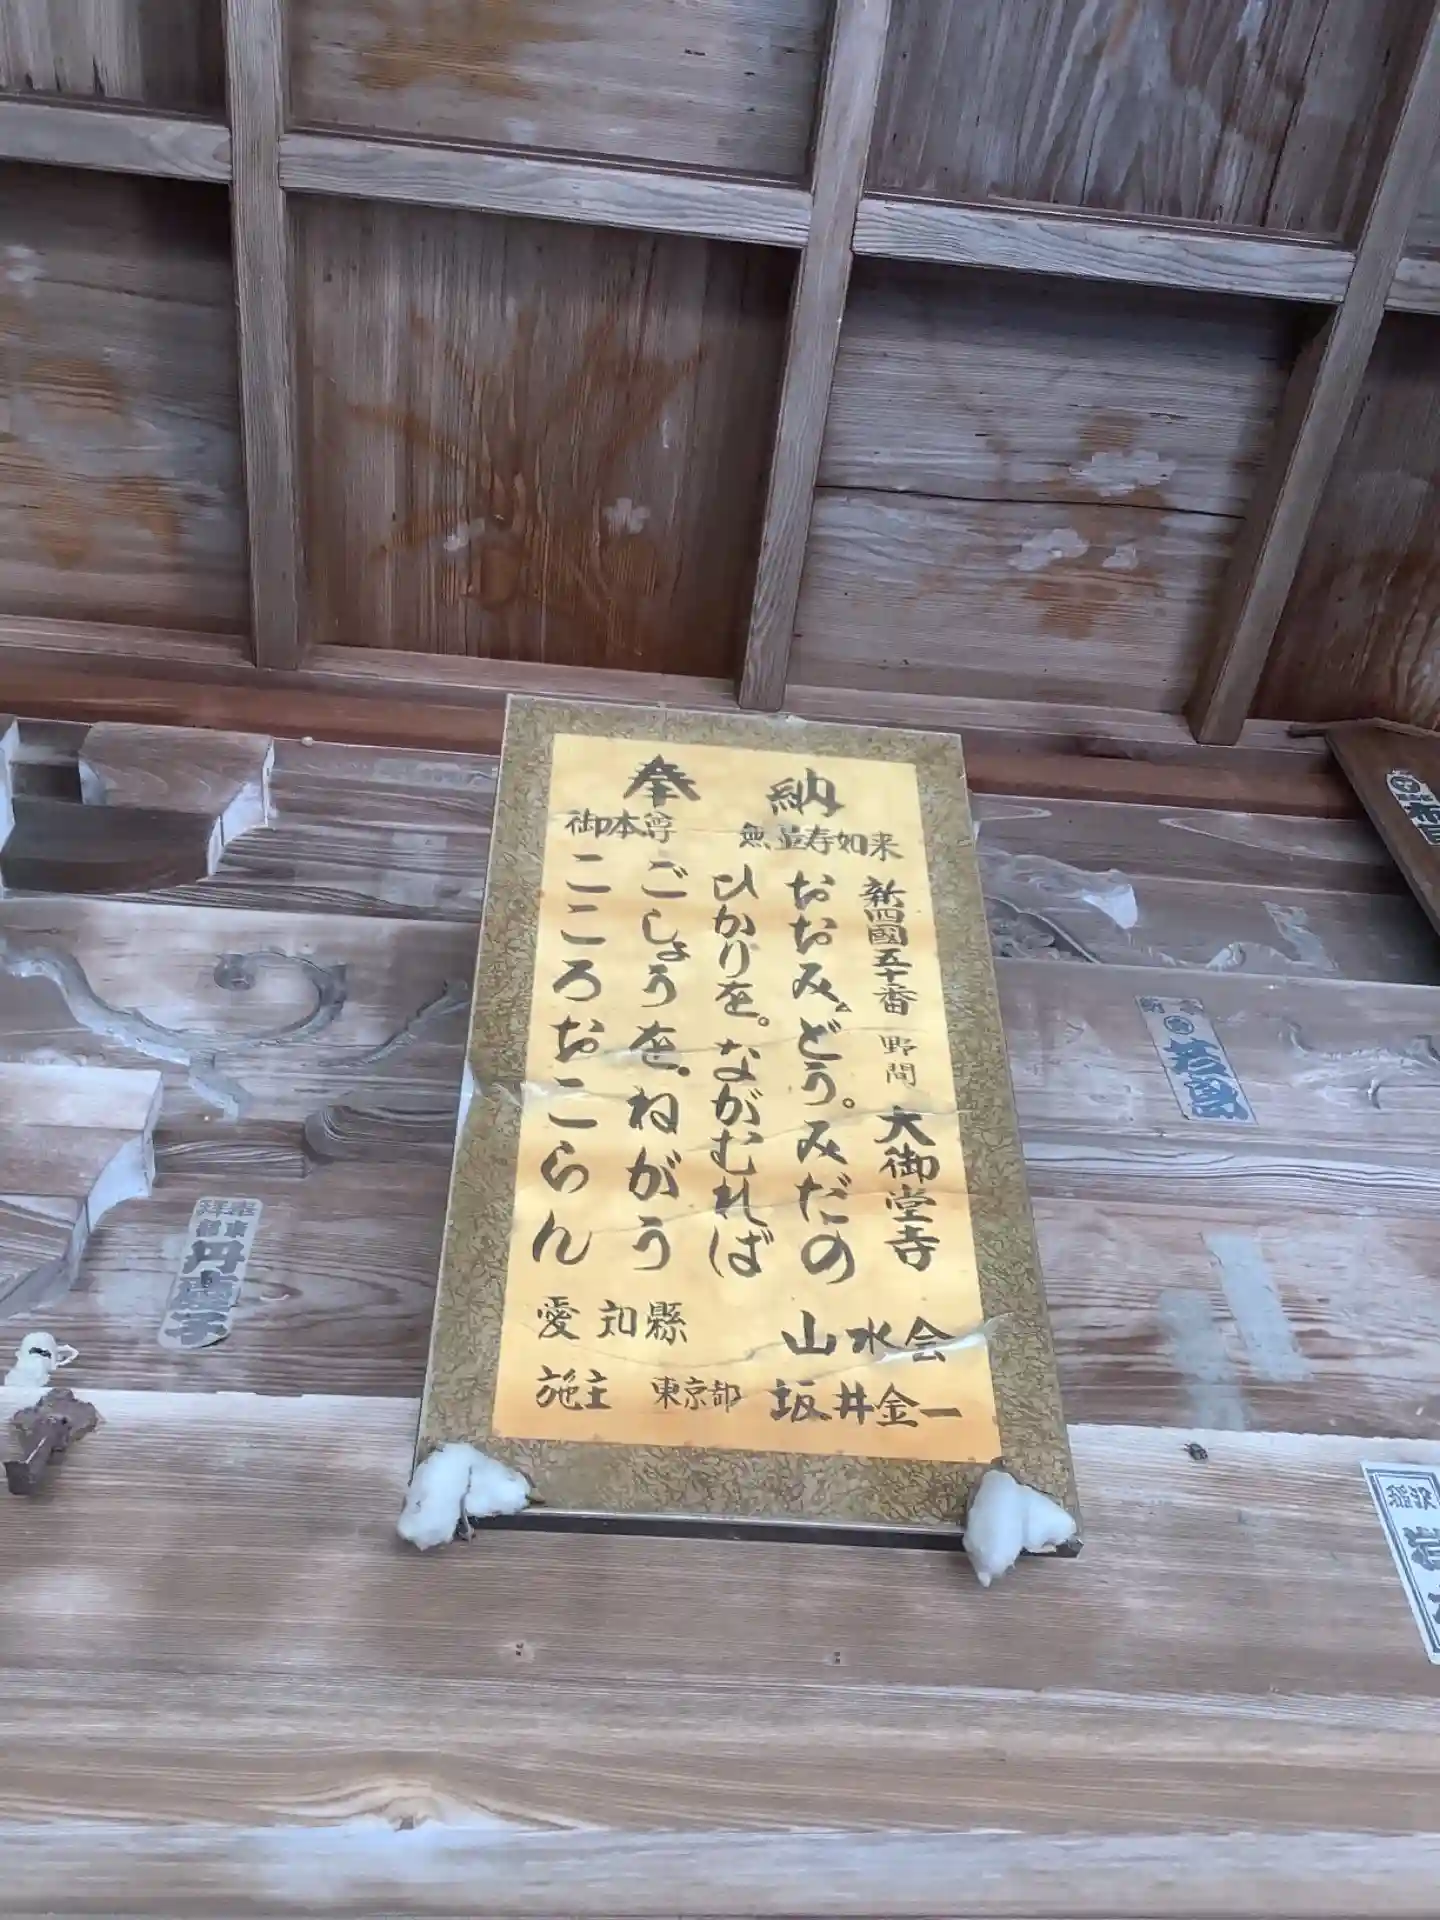 奉納
御本尊 無量寿如来
新四國五十番 野間 大御堂寺
おおみどう。みだの
ひかりを。ながむれば
ごしょうを。ねがう
こころおこらん
愛知縣 山水会
施主 東京都 坂井金一
稲沢